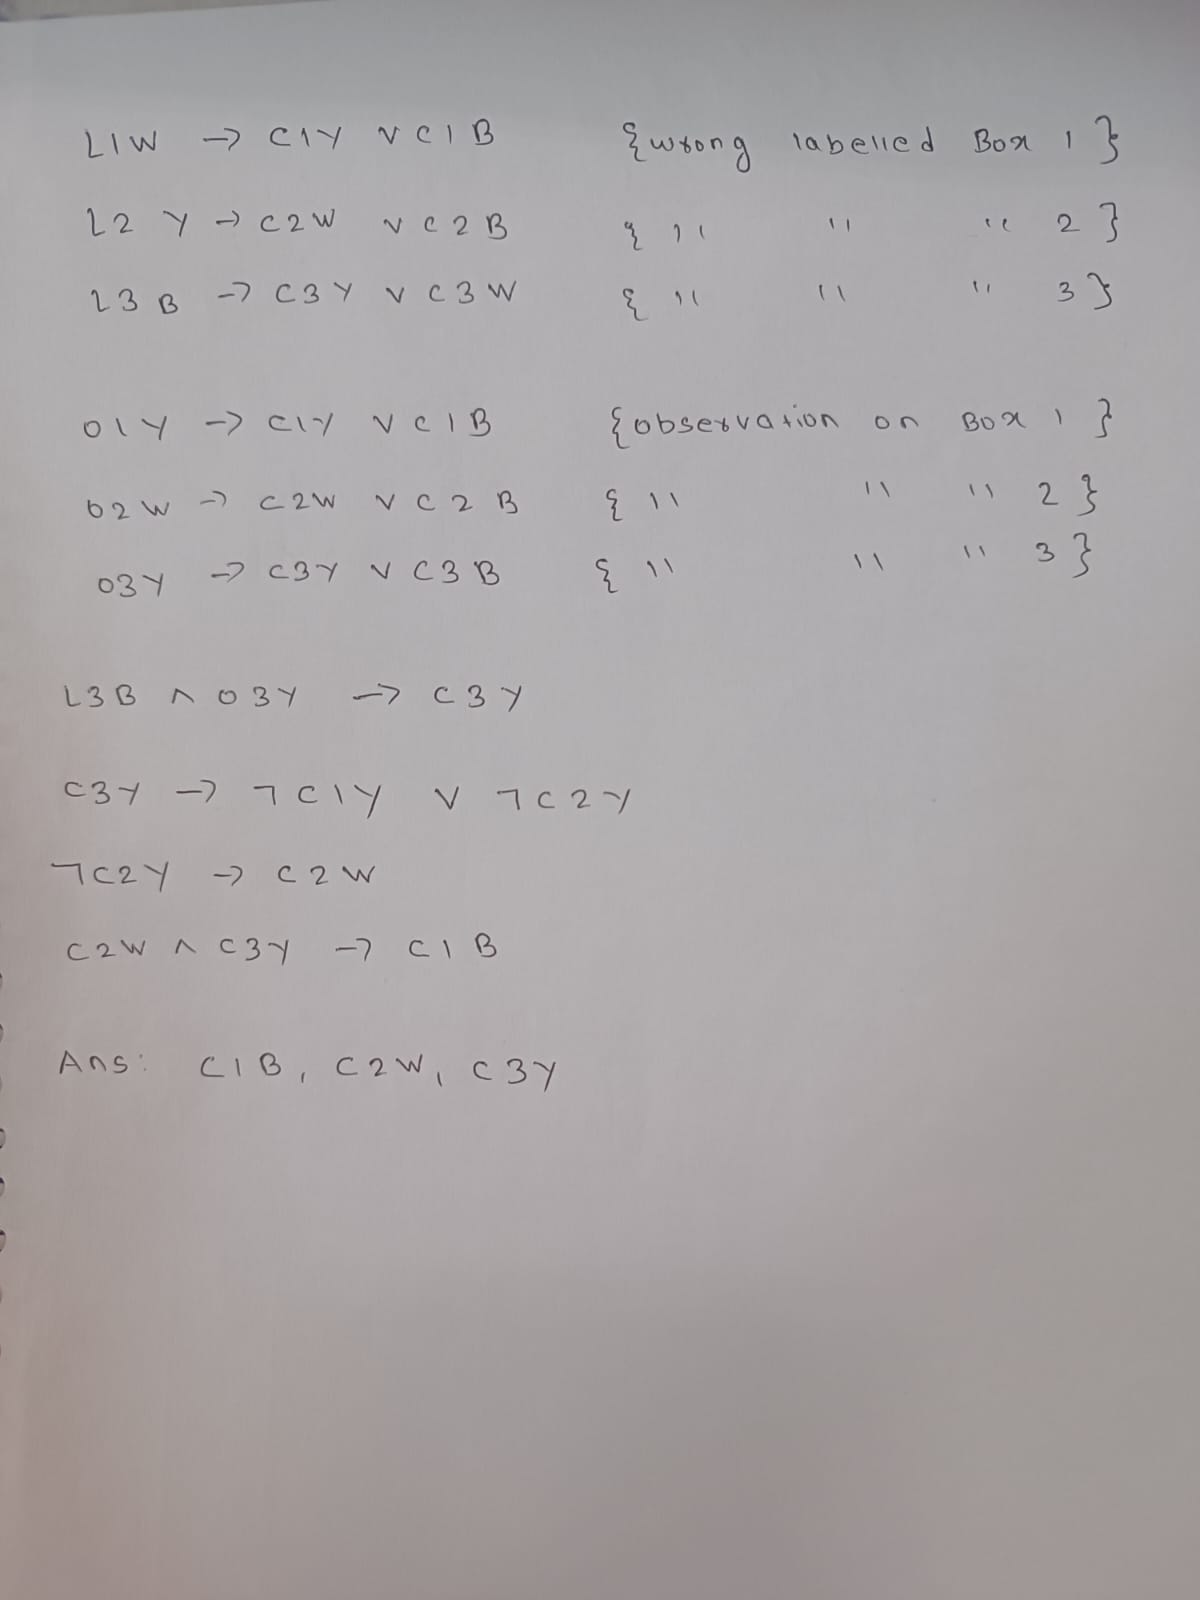 L1W → C1Y ∨ C1B {wrong labelled Box 1}
L2Y → C2W ∨ C2B { " " " 2}
L3B → C3Y ∨ C3W { " " " 3}
O1Y → C1Y ∨ C1B {observation on Box 1}
O2W → C2W ∨ C2B { " " " 2}
O3Y → C3Y ∨ C3B { " " " 3}
L3B ∧ O3Y → C3Y
C3Y → ¬C1Y ∨ ¬C2Y
¬C2Y → C2W
C2W ∧ C3Y → C1B
Ans: C1B, C2W, C3Y